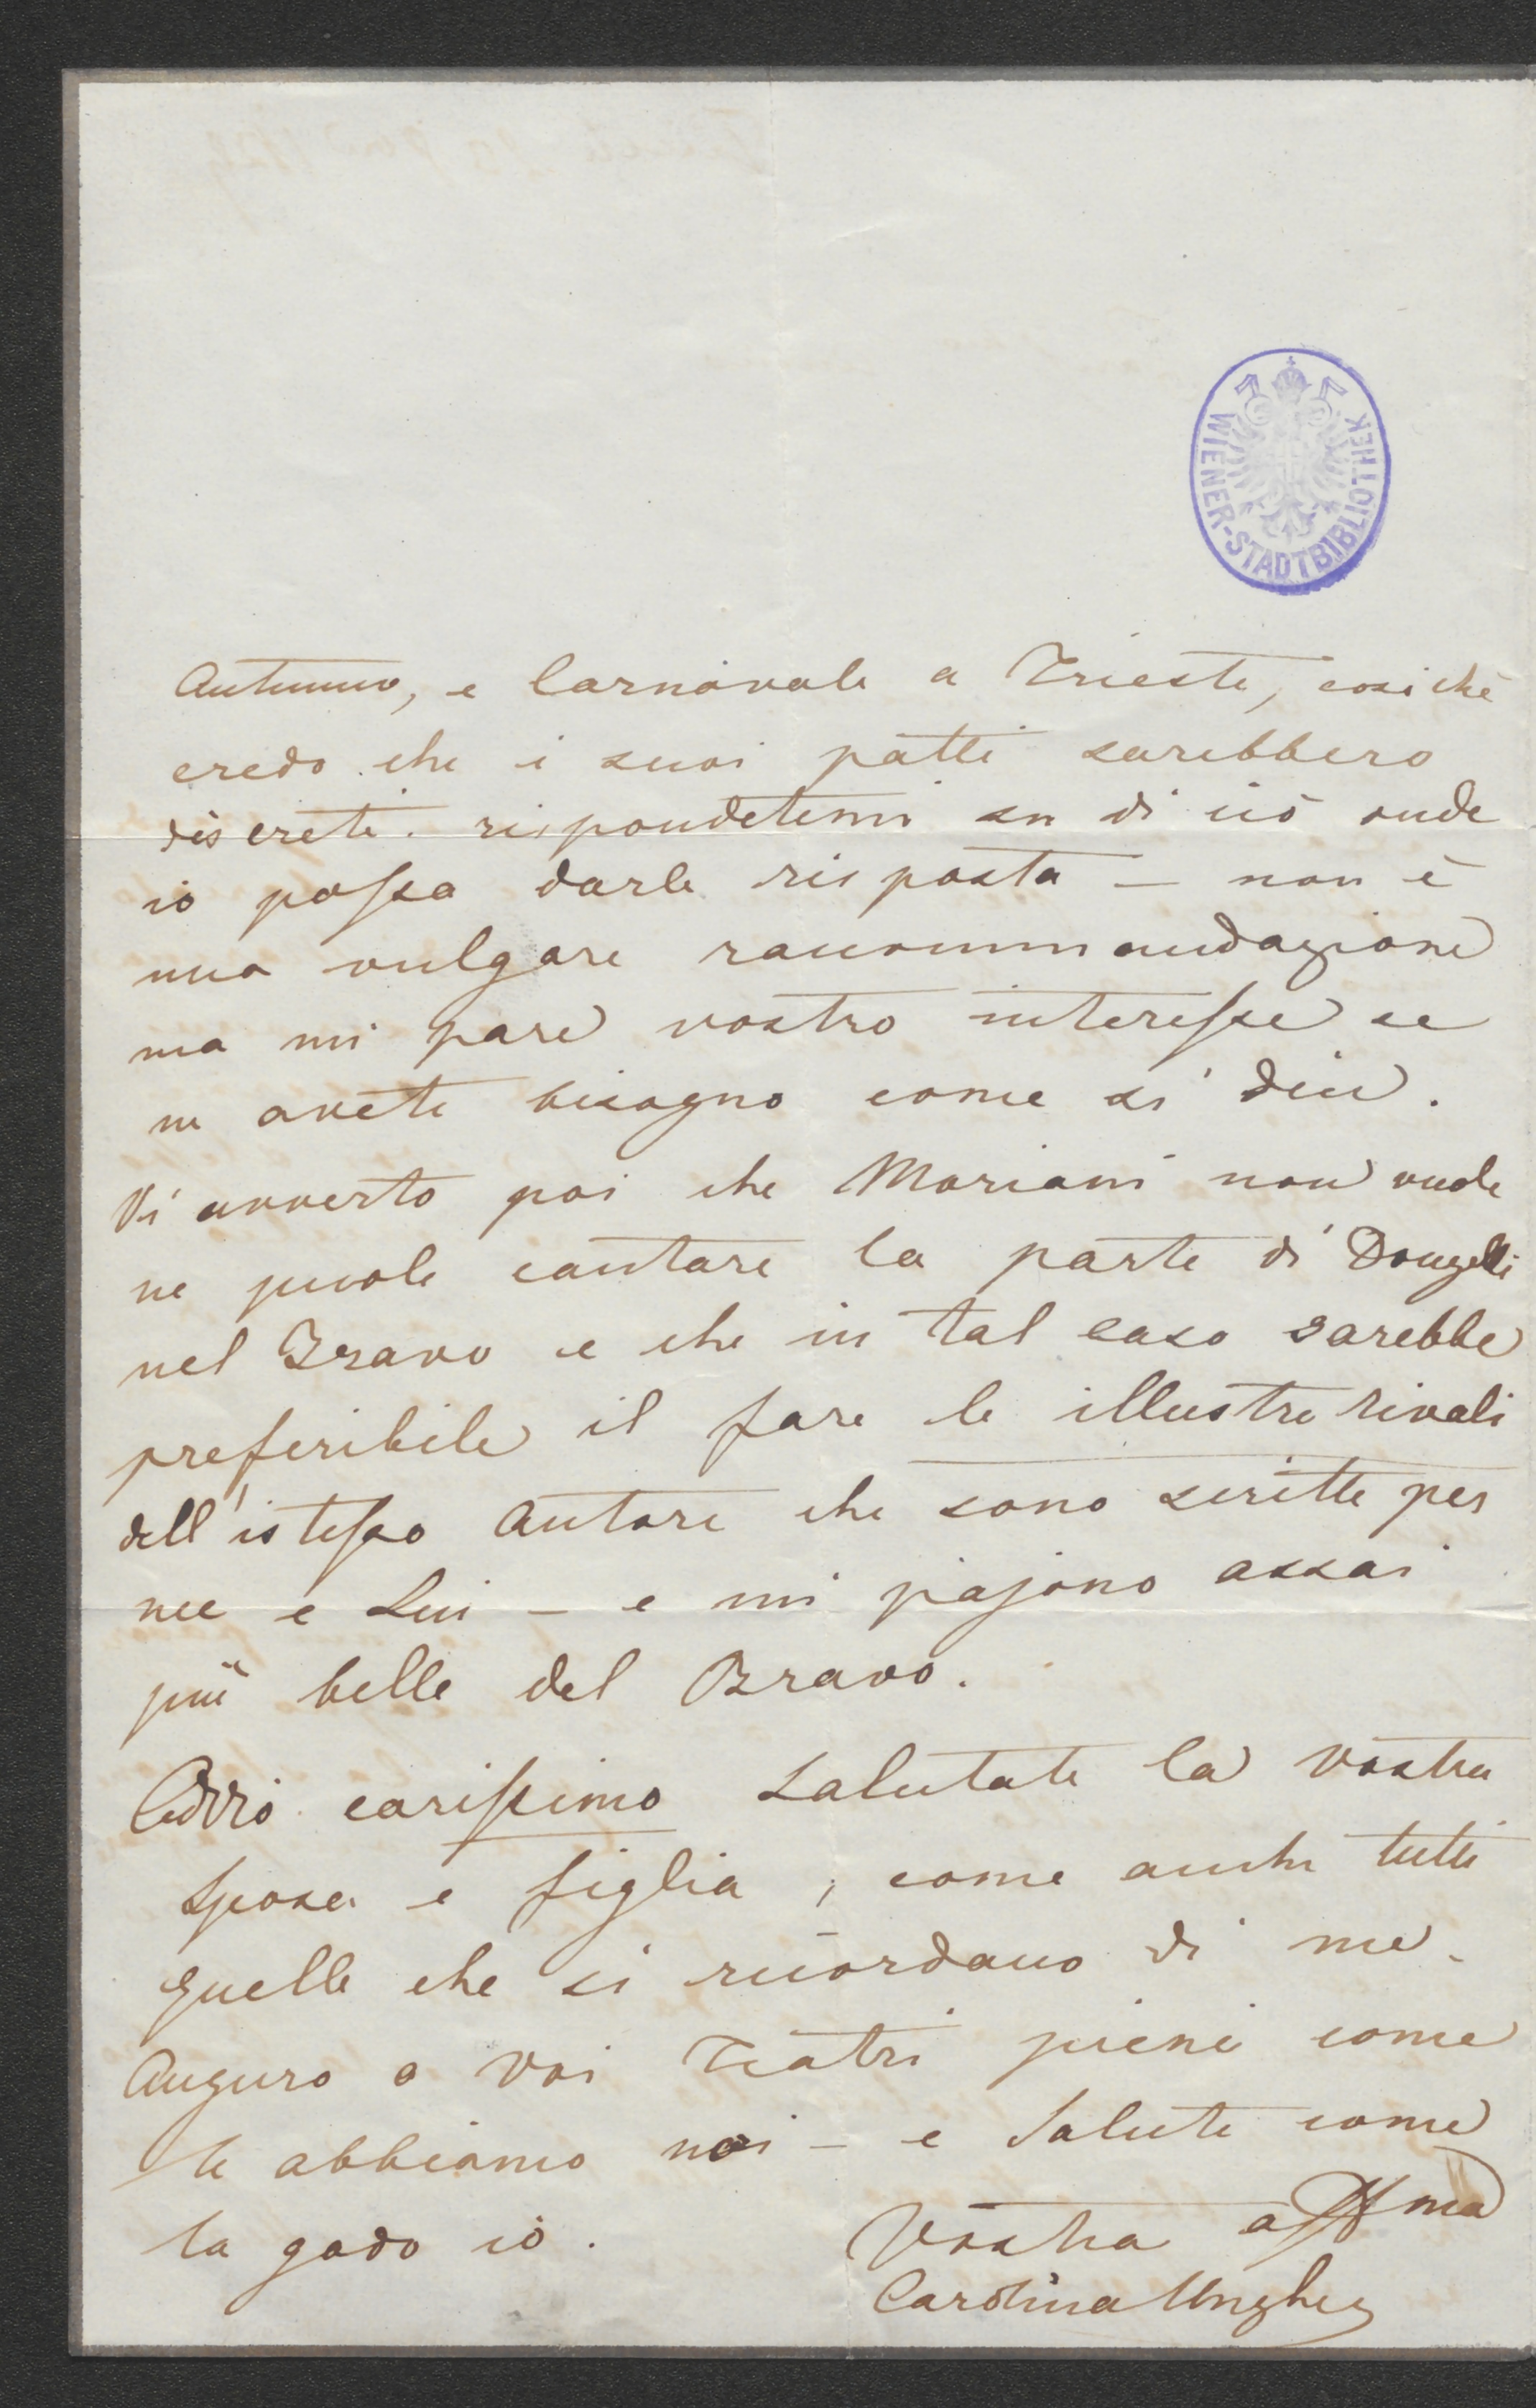 WIENER-STADTBIBLIOTHEK
Autunno, e Carnovale a Trieste, cosichè
credo che i suoi patti sarebbero
discreti. rispondetemi su di ciò onde
io possa darle risposta — non è
una vulgare raccommandazione
ma mi pare vostro interesse se
ne avete bisogno come si dice.
Vi avverto poi che Moriani non vuole
ne puole cantare la parte di Donzelli
nel Bravo e che in tal caso sarebbe
preferibile il fare le illustri rivali
dell'istesso Autore che sono scritte per
me e Lui — e mi pajono assai
più belle del Bravo.
Addio carissimo salutate la vostra
sposa e figlia, come anche tutti
quelli che si ricordano di me.
Auguro a voi Teatri pieni come
le abbiamo noi — e Salute come
la godo io.
Vostra affma
Carolina Ungher